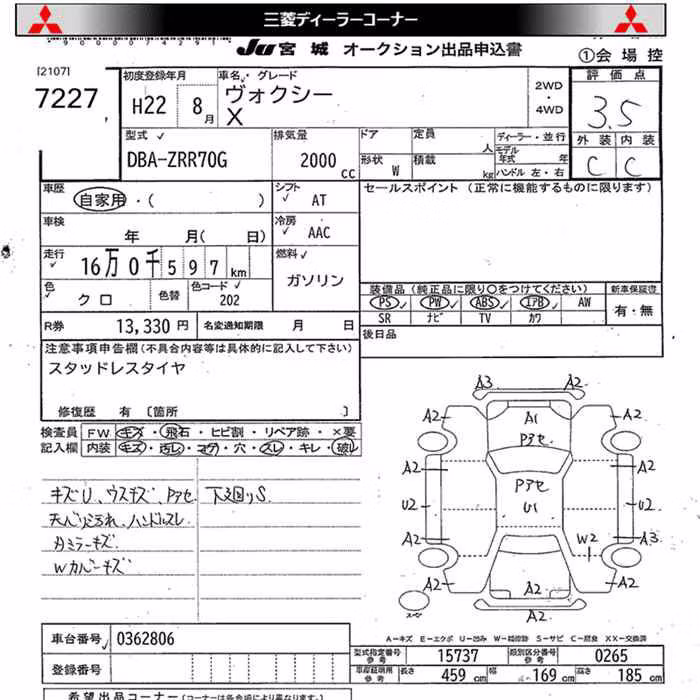 三菱ディーラーコーナー
JU 宮城 オークション出品申込書
①会場控
[2107]
7227
初度登録年月
H22 8月
車名・グレード
ヴォクシー
X
2WD
・
4WD
評価点
3.5
外装 内装
C C
型式
DBA-ZRR70G
排気量
2000 cc
ドア
形状 W
定員 人
積載 kg
ディーラー・並行
モデル年式 年
ハンドル 左・右
車歴
自家用・( )
シフト
AT
セールスポイント (正常に機能するものに限ります)
車検
年 月( 日)
冷房
AAC
走行
16万0千597km
燃料
ガソリン
色
クロ
色替
色コード
202
装備品 (純正品に限り○をつけてください)
新車保証書
PS PW ABS エアB AW
有・無
SR ナビ TV カワ
R券 13,330 円
名変通知期限 月 日
後日品
注意事項申告欄 (不具合内容等は具体的に記入して下さい)
スタッドレスタイヤ
修復歴 有 〔箇所 〕
検査員
記入欄
FW キズ・飛石・ヒビ割・リペア跡・×要
内装 キズ・汚レ・コゲ・穴・スレ・キレ・破レ
キズU、ウスキズ、Pアセ 下廻りS
天ベリ汚れ、ハンドルスレ
カミラーキズ
Wカバーキズ
A3 A2
A2 A1 A2
Pアセ
A2 A2
Pアセ
U2 U1 U2
A2 W2 A3
A2 A2 A2
A2
スペアー
A-キズ E-エクボ U-凹み W-補修跡 S-サビ C-腐食 XX-交換済
車台番号 0362806
登録番号
型式指定番号
参考
15737
類別区分番号
参考
0265
車庫証明用
参考
長さ 459 cm
幅 169 cm
高さ 185 cm
希望出品コーナー